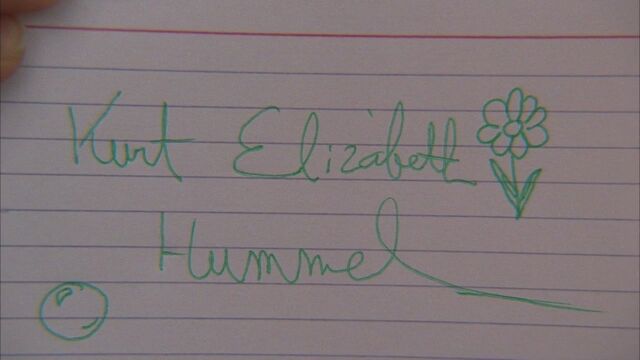 Kurt Elizabeth
Hummel